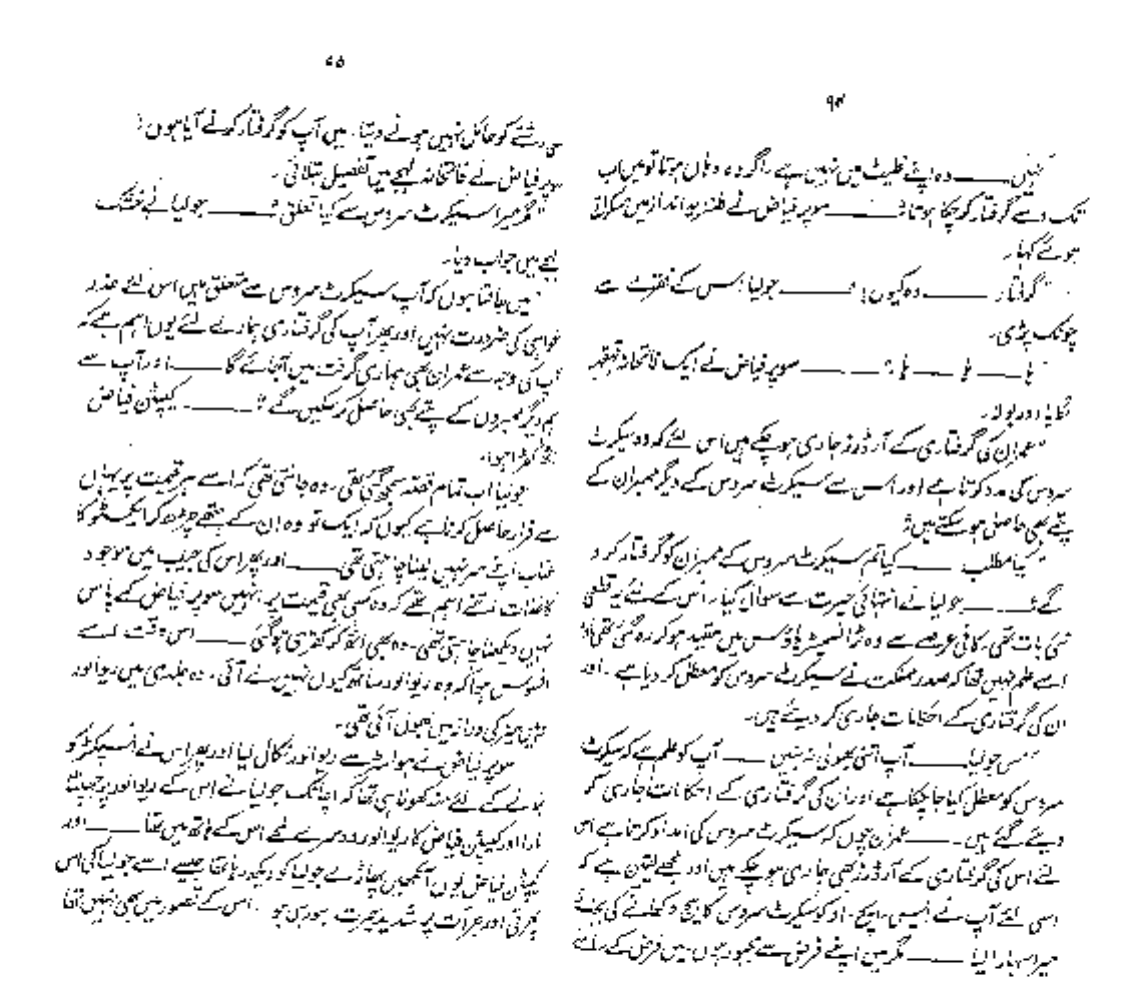 ۹۴
نہیں ——— وہ اپنے فلیٹ میں نہیں ہے۔ اگر وہ وہاں ہوتا تو میں اب
تک اسے گرفتار کر چکا ہوتا؛ ——— سوپر فیاض نے طنزیہ انداز میں مسکراتے
ہوئے کہا۔
"گرفتار ——— وہ کیوں؛ ——— جولیا اس کے فقرے سے
چونک پڑی۔
ہا ——— ہا ——— ہا؛ ——— سوپر فیاض نے ایک فاتحانہ قہقہہ
لگایا اور بولا۔
"عمران کی گرفتاری کے آرڈرز جاری ہو چکے ہیں اس لئے کہ وہ سیکرٹ
سروس کی مدد کرتا ہے اور اس سے سیکرٹ سروس کے دیگر ممبران کے
پتے بھی حاصل ہو سکتے ہیں؛
"کیا مطلب ——— کیا تم سیکرٹ سروس کے ممبران کو گرفتار کرو
گے؛ ——— جولیا نے انتہائی حیرت سے سوال کیا۔ اس کے لئے یہ قطعی
نئی بات تھی۔ کافی عرصے سے وہ ٹرانسمیٹر ہاؤس میں مقید ہو کر رہ گئی تھی اور
اسے علم نہیں تھا کہ صدر مملکت نے سیکرٹ سروس کو معطل کر دیا ہے۔ اور
ان کی گرفتاری کے احکامات جاری کر دیئے ہیں۔
"مس جولیا ——— آپ اتنی بھولی نہ بنیں ——— آپ کو علم ہے کہ سیکرٹ
سروس کو معطل کیا جا چکا ہے اور ان کی گرفتاری کے احکامات جاری کر
دیئے گئے ہیں۔ ——— عمران چوں کہ سیکرٹ سروس کی امداد کرتا ہے اس
لئے اس کی گرفتاری کے آرڈرز بھی جاری ہو چکے ہیں اور مجھے یقین ہے کہ
اسی لئے آپ نے ایس۔ ایچ۔ او کو سیکرٹ سروس کا بیج دکھانے کی بجائے
میرا سہارا لیا ——— مگر میں اپنے فرض سے مجبور ہوں۔ میں فرض کے راستے
۹۵
میں رشتے کو حائل نہیں ہونے دیتا۔ میں آپ کو گرفتار کرنے آیا ہوں؛
سوپر فیاض نے فاتحانہ لہجے میں تفصیل بتلائی۔
"مگر میرا سیکرٹ سروس سے کیا تعلق؛ ——— جولیا نے خشک
لہجے میں جواب دیا۔
"میں جانتا ہوں کہ آپ سیکرٹ سروس سے متعلق ہیں اس لئے عذر
خواہی کی ضرورت نہیں اور پھر آپ کی گرفتاری ہمارے لئے یوں اہم ہے کہ
آپ کی وجہ سے عمران بھی ہماری گرفت میں آجائے گا ——— اور آپ سے
ہم دیگر ممبروں کے پتے بھی حاصل کر سکیں گے؛ ——— کیپٹن فیاض
اٹھ کھڑا ہوا۔
جولیا اب تمام قصہ سمجھ گئی تھی۔ وہ جانتی تھی کہ اسے ہر قیمت پر یہاں
سے فرار حاصل کرنا ہے کیوں کہ ایک تو وہ ان کے ہتھے چڑھ کر ایکسٹو کا
عتاب اپنے سر نہیں لینا چاہتی تھی ——— اور پھر اس کی جیب میں موجود
کاغذات اتنے اہم تھے کہ وہ کسی بھی قیمت پر انہیں سوپر فیاض کے پاس
نہیں دیکھنا چاہتی تھی۔ وہ بھی اٹھ کر کھڑی ہو گئی ——— اس وقت اسے
افسوس ہوا کہ وہ ریوالور ساتھ کیوں نہیں لے آئی۔ وہ جلدی میں ریوالور
وہیں میز کی دراز میں بھول آئی تھی۔
سوپر فیاض نے ہولسٹر سے ریوالور نکال لیا اور پھر اس نے انسپکٹر کو
بلانے کے لئے منہ کھولا ہی تھا کہ اچانک جولیا نے اس کے ریوالور پر جھپٹا
مارا اور کیپٹن فیاض کا ریوالور دوسرے لمحے اس کے ہاتھ میں تھا ——— اور
کیپٹن فیاض یوں آنکھیں پھاڑے جولیا کو دیکھ رہا تھا جیسے اسے جولیا کی اس
پھرتی اور جرأت پر شدید حیرت ہو رہی ہو۔ اس کے تصور میں بھی نہیں تھا